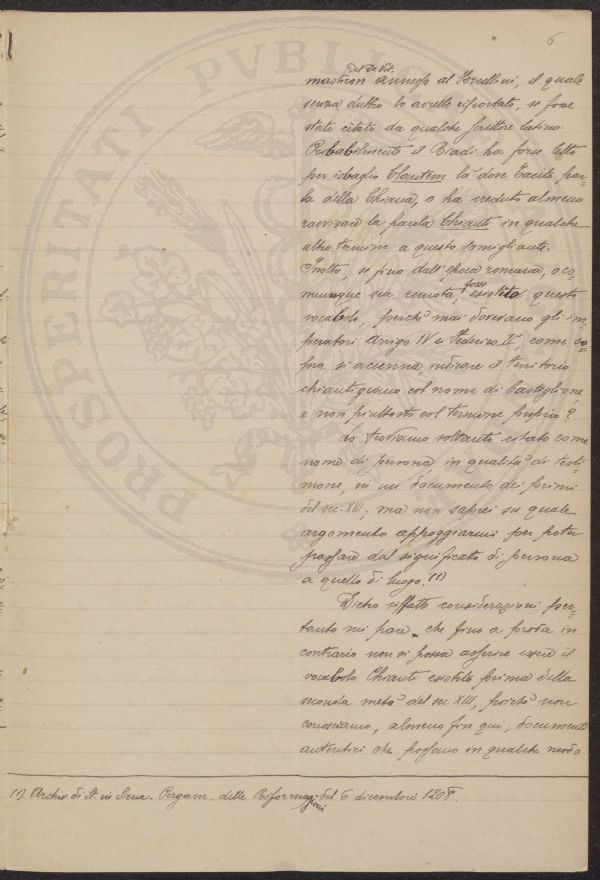 6
del De Vit.
masticon annesso al Forcellini, il quale
senza dubbio lo avrebbe riportato, se fosse
stato citato da qualche scrittore latino.
Probabilmente il Biadi ha forse letto
per isbaglio Clantem là dove Tacito par-
la della Chiana, o ha creduto almeno
ravvisare la parola Chianti in qualche
altro termine a questo somigliante.
Inoltre, se fino dall'epoca romana, o co-
munque sia remota, fosse esistito questo
vocabolo, perchè mai dovevano gli im-
peratori Arrigo IV e Federico II, come so-
pra si accenna, indicare il territorio
chiantigiano col nome di Castiglione,
e non piuttosto col termine proprio?
Lo troviamo soltanto citato come
nome di persona, in qualità di testi-
mone, in un documento dei primi
del sec. XIII; ma non saprei su quale
argomento appoggiarmi per poter
passare dal significato di persona
a quello di luogo. (1)
Dietro siffatte considerazioni per-
tanto mi pare, che fino a prova in
contrario non si possa asserire essere il
vocabolo Chianti esistito prima della
seconda metà del sec. XIII, poichè non
conosciamo, almeno fin qui, documenti
autentici che possano in qualche modo
(1) Archiv. di St. in Siena. Pergam. delle Riformagioni del 6 dicembre 1208.
PROSPERITATI PVBLICAE